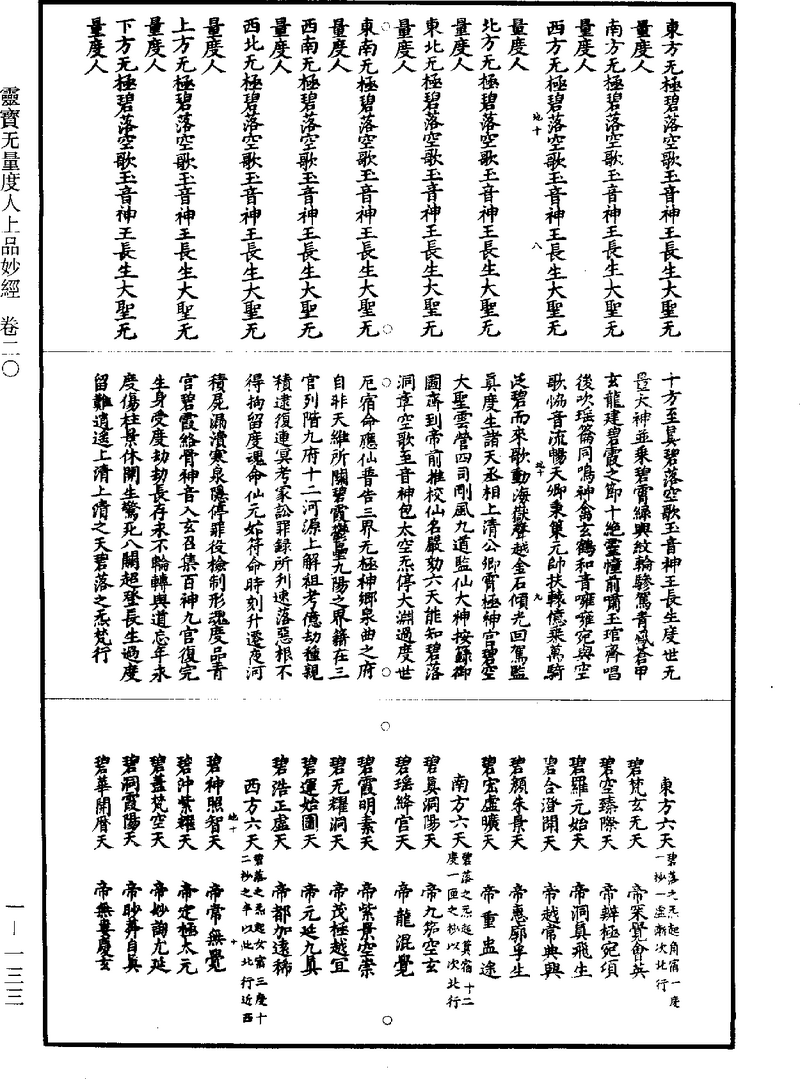 東方无極碧落空歌玉音神王長生大聖无
量度人
南方无極碧落空歌玉音神王長生大聖无
量度人
西方无極碧落空歌玉音神王長生大聖无
量度人
北方无極碧落空歌玉音神王長生大聖无
量度人
東北无極碧落空歌玉音神王長生大聖无
量度人
東南无極碧落空歌玉音神王長生大聖无
量度人
西南无極碧落空歌玉音神王長生大聖无
量度人
西北无極碧落空歌玉音神王長生大聖无
量度人
上方无極碧落空歌玉音神王長生大聖无
量度人
下方无極碧落空歌玉音神王長生大聖无
量度人
地十
八
十方至真碧落空歌玉音神王長生度世无
量大神並乘碧霄綠輿紋輪驂駕青鳳蒼甲
玄龍建碧霞之節十絶靈幢前嘯玉琯齊唱
後吹瑶籥同鳴神禽玄鶴和音嗈嗈宛與空
歌恊音流暢天鄉秉籙元帥扶轅億乘萬騎
泛碧而來歌動海嶽聲越金石傾光回駕監
真度生諸天丞相上清公卿霄極神宫碧空
大聖雲營四司剛風九道監仙大神按籙御
圖齊到帝前推校仙名嚴劾六天能知碧落
洞章空歌至音神包太空炁停大淵過度世
厄宿命應仙普告三界无極神鄉泉曲之府
自非天維所關碧霞鬱壘九陽之界籍在三
官列階九府十二河源上解祖考億劫種親
積逮復連冥考冢訟罪録所列速落惡根不
得拘留度魂命仙元始符命時刻升遷夜河
積屍漏瀆寒泉隱停罪役檢制形魂度品青
宫碧霞絡骨神音入玄召集百神九宫復完
生身受度劫劫長存永不輪轉與道忘年永
度傷柱景休開生驚死八關超登長生過度
留難逍遥上清上清之天碧落之炁梵行
地十
九
東方六天碧落之炁起角宿一度一杪一虚漸次北行
碧梵玄无天 帝罙贒會英
碧空臻際天 帝辨極宛須
碧羅元始天 帝洞真飛生
碧合澄開天 帝越常典興
碧顔朱景天 帝惠廓孚生
碧宏虚曠天 帝重盅途
南方六天碧落之炁起箕宿十二度一匝之杪以次北行
碧真洞陽天 帝九茹空玄
碧瑶絳宫天 帝龍混覺
碧霞明素天 帝紫景空崇
碧无耀洞天 帝茂極越宜
碧運始圖天 帝元延九真
碧浩正虚天 帝都加遠稀
西方六天碧落之炁起女宿三度十二杪之半以此北行近西
碧神照智天 帝常無覺
碧沖紫耀天 帝定極太元
碧蓋梵空天 帝妙詢尤延
碧洞霞陽天 帝眇莽自真
碧華開曆天 帝無曼慶玄
地十
十
靈寳无量度人上品妙經 卷二〇
一—一三三